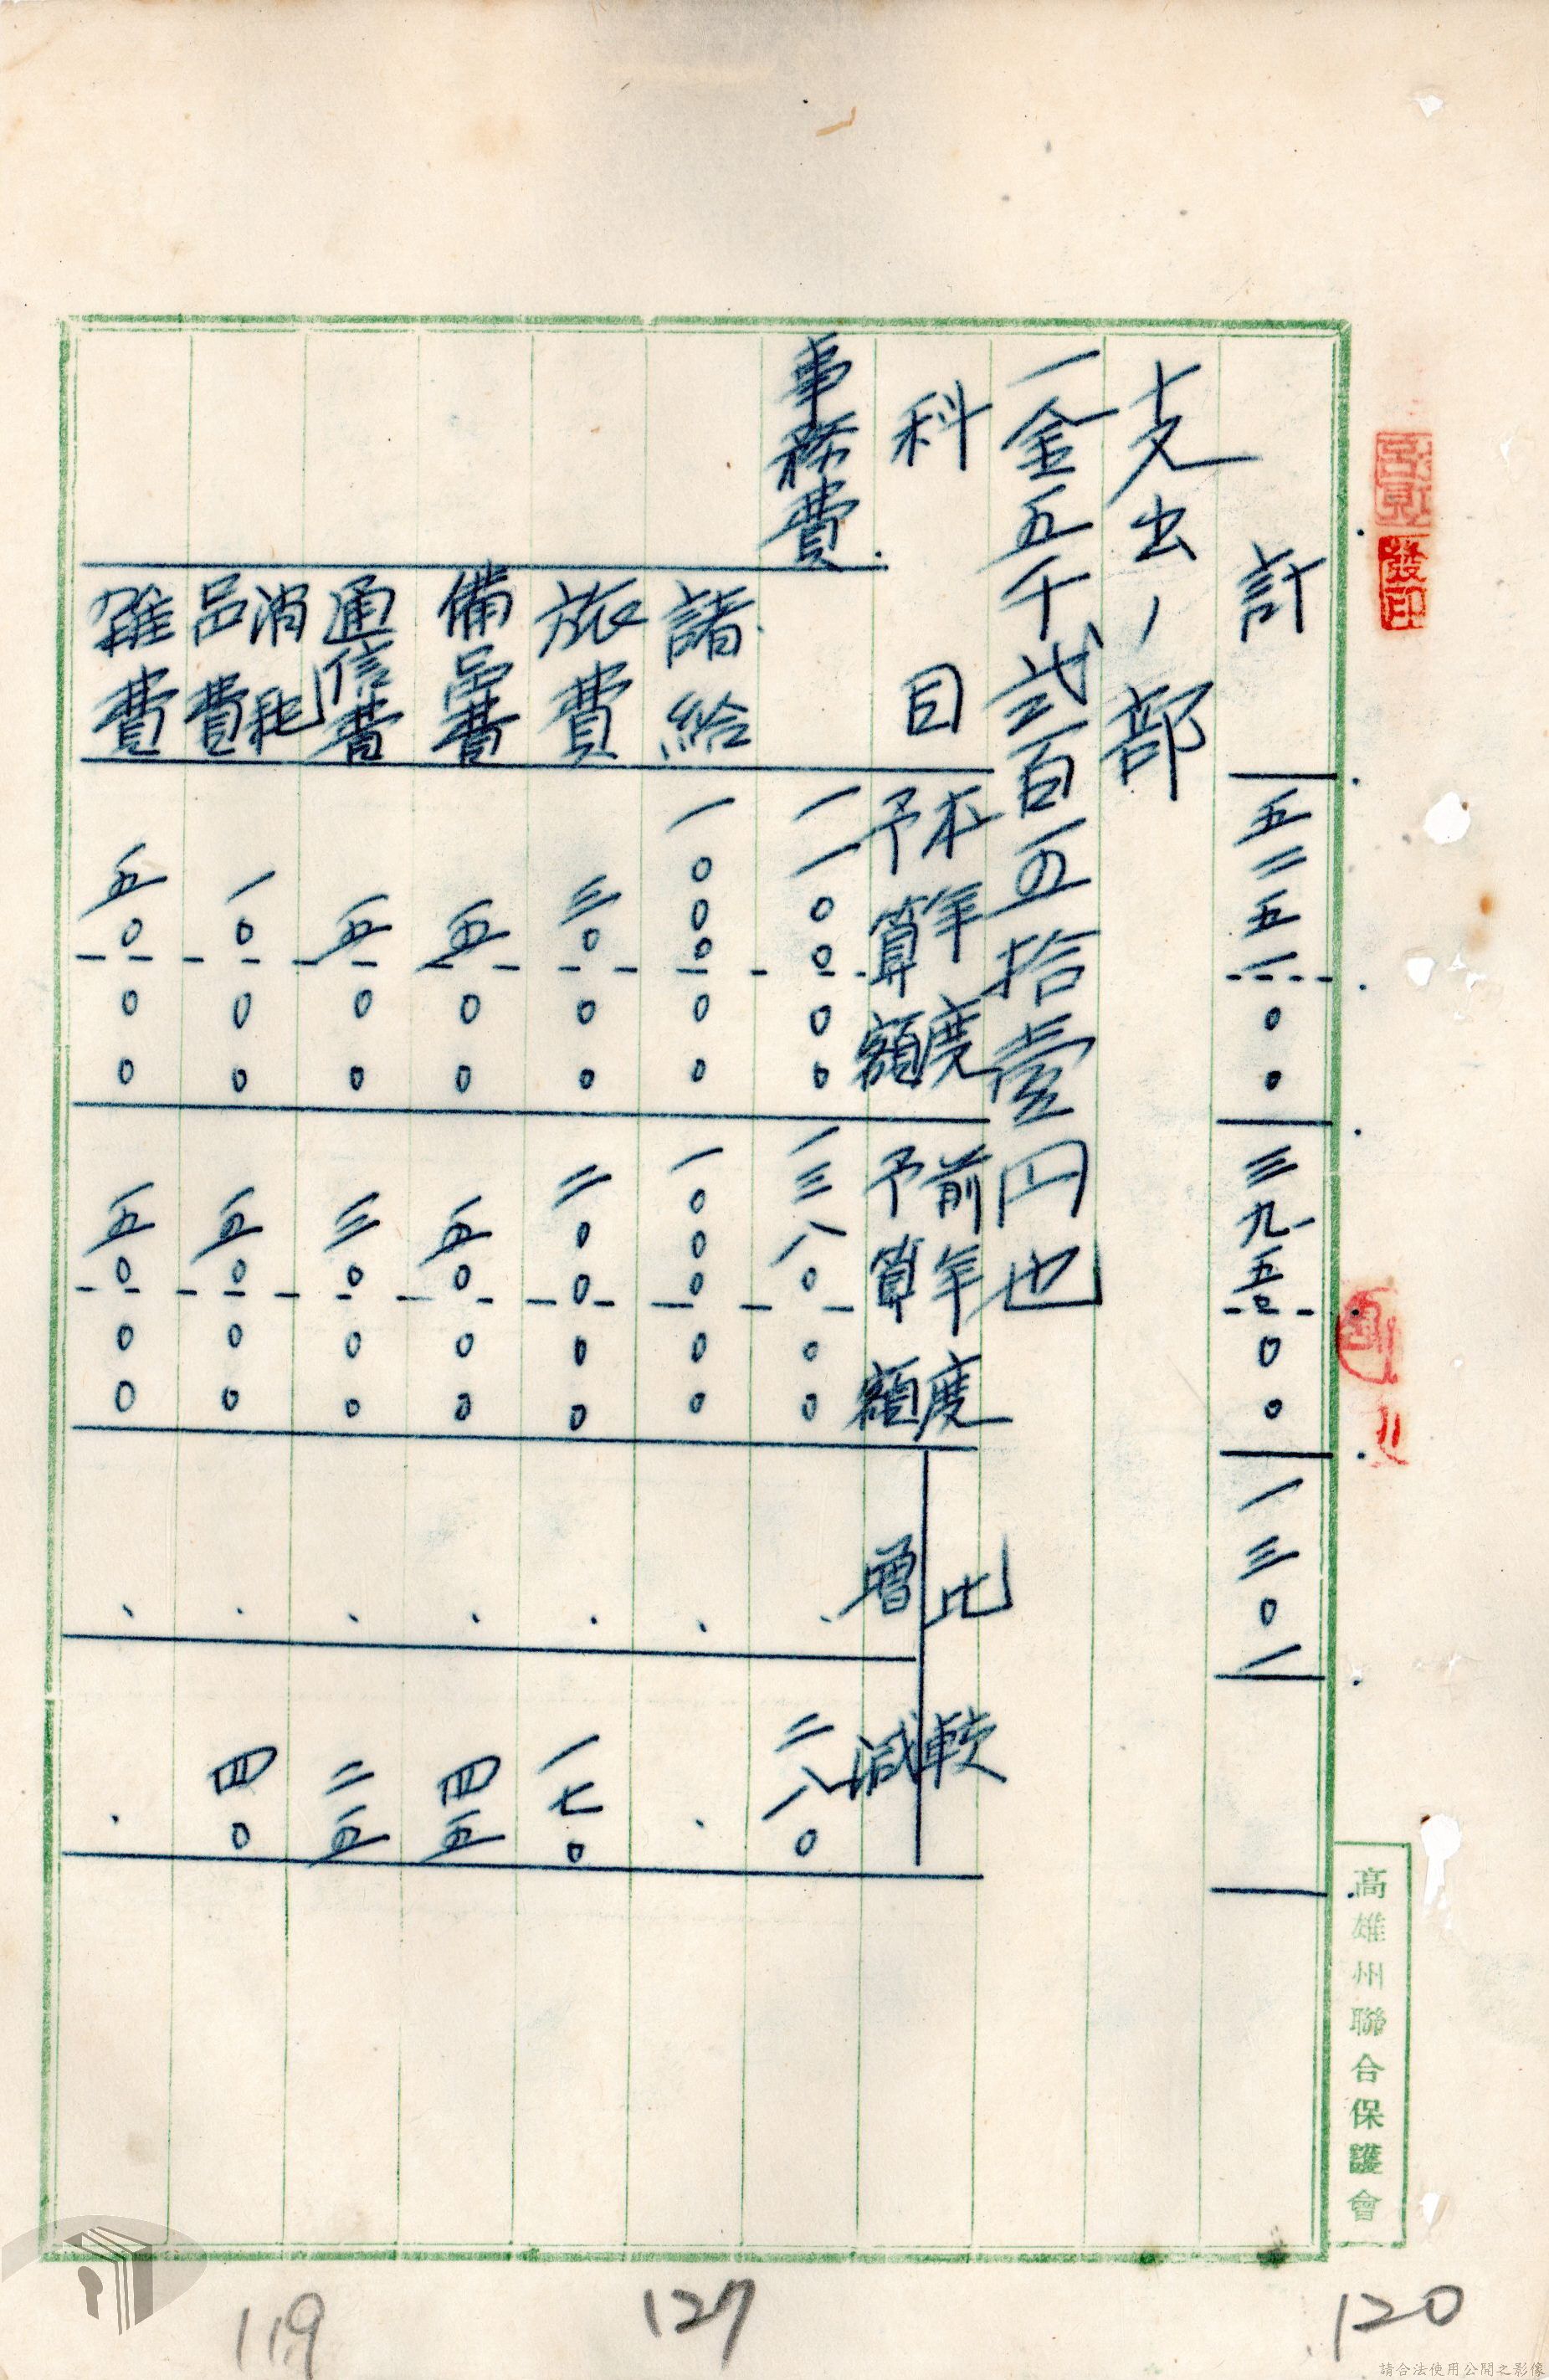 計 五二五一〇〇 三九五〇〇〇 一三〇一
支出ノ部
一金五千弐百五拾壹円也
科目 本年度予算額 前年度予算額 比較 増 減
事務費 一一〇〇〇〇 一三八〇〇〇 二八〇
諸給 一〇〇〇〇〇 一〇〇〇〇〇
旅費 三〇〇〇 二〇〇〇〇 一七〇
備品費 五〇〇 五〇〇〇 四五
通信費 五〇〇 三〇〇〇 二五
消耗品費 一〇〇〇 五〇〇〇 四〇
雑費 五〇〇〇 五〇〇〇
高雄州聯合保護會
120
127
119
請合法使用公開之影像